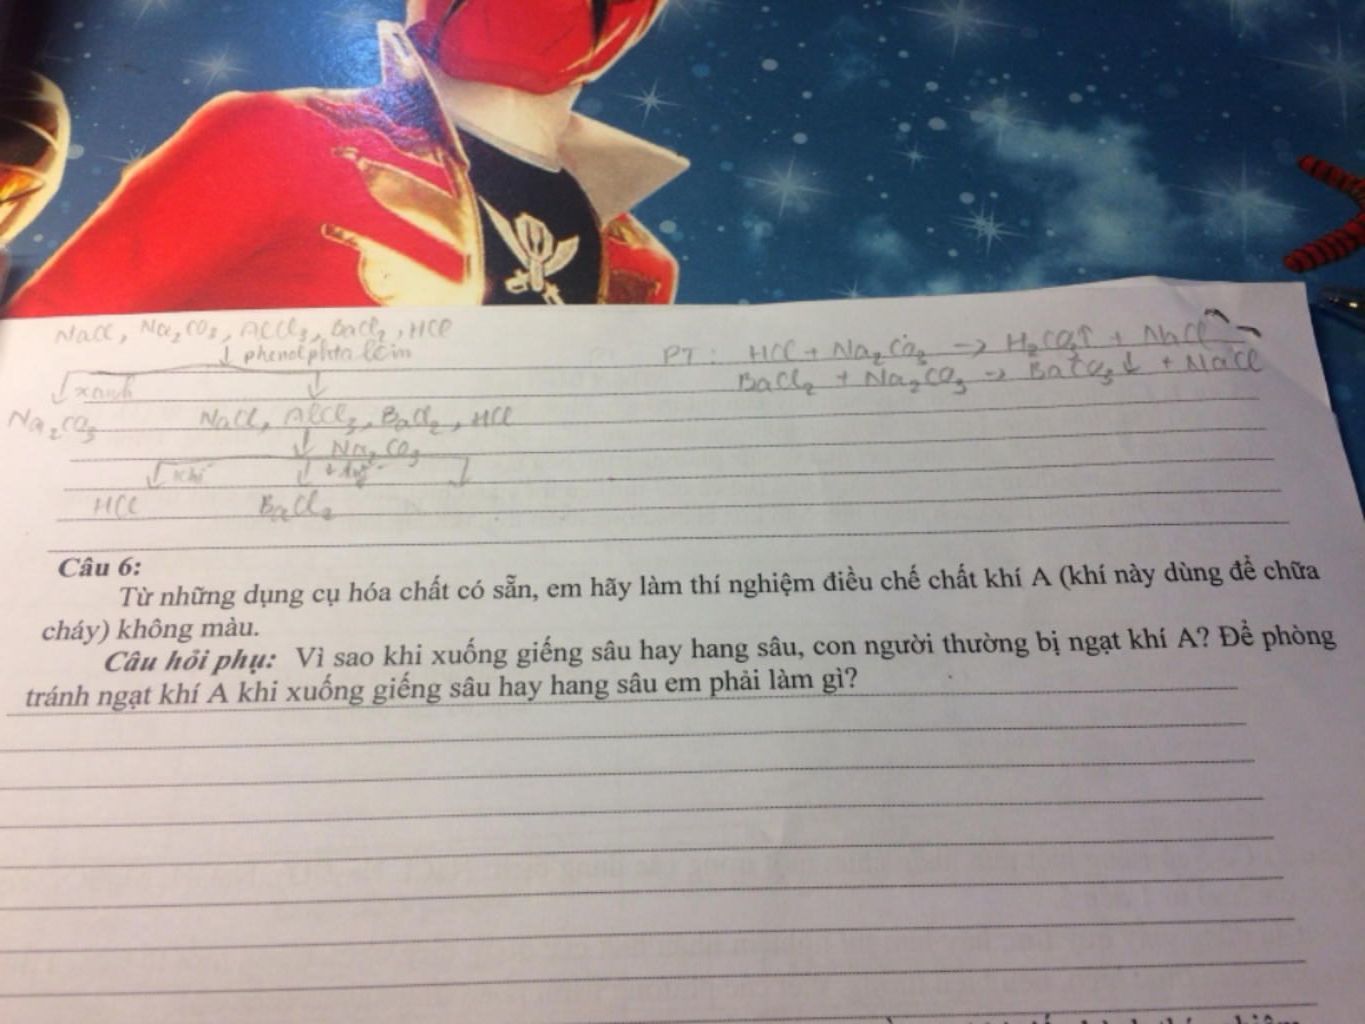 NaCl, Na₂CO₃, AlCl₃, BaCl₂, HCl
↓ phenolphtalêin
xanh
Na₂CO₃ NaCl, AlCl₃, BaCl₂, HCl
↓ Na₂CO₃
khí ↓
HCl BaCl₂
PT: HCl + Na₂CO₃ → H₂CO₃↑ + NaCl
BaCl₂ + Na₂CO₃ → BaCO₃↓ + NaCl
Câu 6:
Từ những dụng cụ hóa chất có sẵn, em hãy làm thí nghiệm điều chế chất khí A (khí này dùng để chữa
cháy) không màu.
Câu hỏi phụ: Vì sao khi xuống giếng sâu hay hang sâu, con người thường bị ngạt khí A? Để phòng
tránh ngạt khí A khi xuống giếng sâu hay hang sâu em phải làm gì?